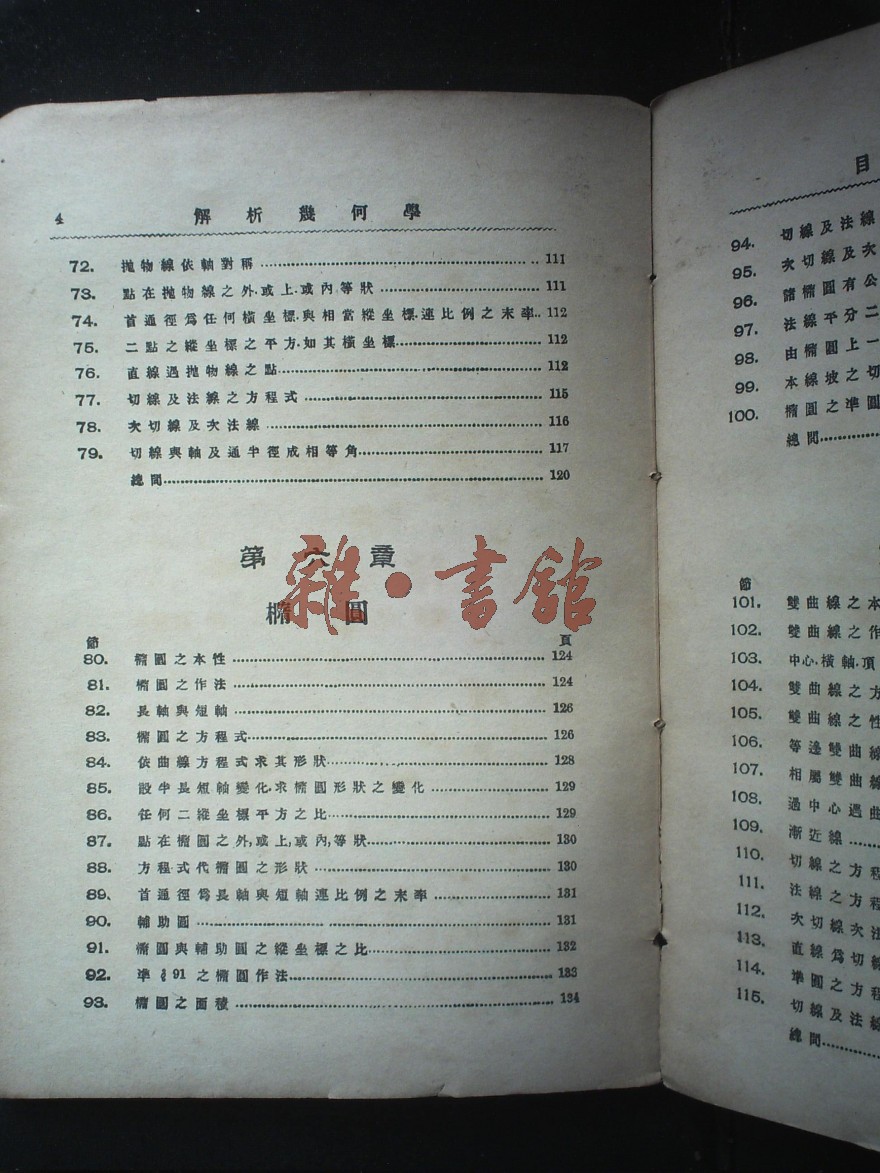 4 解析幾何學
72. 拋物線依軸對稱 111
73. 點在拋物線之外·或上·或內等狀 111
74. 首通徑爲任何橫坐標·與相當縱坐標·連比例之末率 112
75. 二點之縱坐標之平方·如其橫坐標 112
76. 直線遇拋物線之點 112
77. 切線及法線之方程式 115
78. 次切線及次法線 116
79. 切線與軸及通半徑成相等角 117
總問 120
第六章
雜·書館
橢圓
節 頁
80. 橢圓之本性 124
81. 橢圓之作法 124
82. 長軸與短軸 126
83. 橢圓之方程式 126
84. 依曲線方程式求其形狀 128
85. 設半長短軸變化·求橢圓形狀之變化 129
86. 任何二縱坐標平方之比 129
87. 點在橢圓之外,或上,或內,等狀 130
88. 方程式代橢圓之形狀 130
89. 首通徑爲長軸與短軸連比例之末率 131
90. 輔助圓 131
91. 橢圓與輔助圓之縱坐標之比 132
92. 準§91之橢圓作法 133
93. 橢圓之面積 134
目
94. 切線及法線
95. 次切線及次
96. 諸橢圓有公
97. 法線平分二
98. 由橢圓上一
99. 本線坡之切
100. 橢圓之準圓
總問
節
101. 雙曲線之本
102. 雙曲線之作
103. 中心·橫軸·頂
104. 雙曲線之方
105. 雙曲線之性
106. 等邊雙曲線
107. 相屬雙曲線
108. 過中心遇曲
109. 漸近線
110. 切線之方程
111. 法線之方程
112. 次切線次法
113. 直線爲切線
114. 準圓之方程
115. 切線及法線
總問